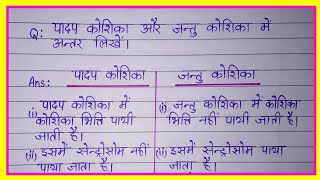 Q: पादप कोशिका और जन्तु कोशिका में
अन्तर लिखें।
Ans: पादप कोशिका जन्तु कोशिका
(i) पादप कोशिका में
कोशिका भित्ति पायी
जाती है।
(ii) इसमें सेन्ट्रोसोम नहीं
पाया जाता है।
(i) जन्तु कोशिका में कोशिका
भित्ति नहीं पायी जाती है।
(ii) इसमें सेन्ट्रोसोम पाया
जाता है।